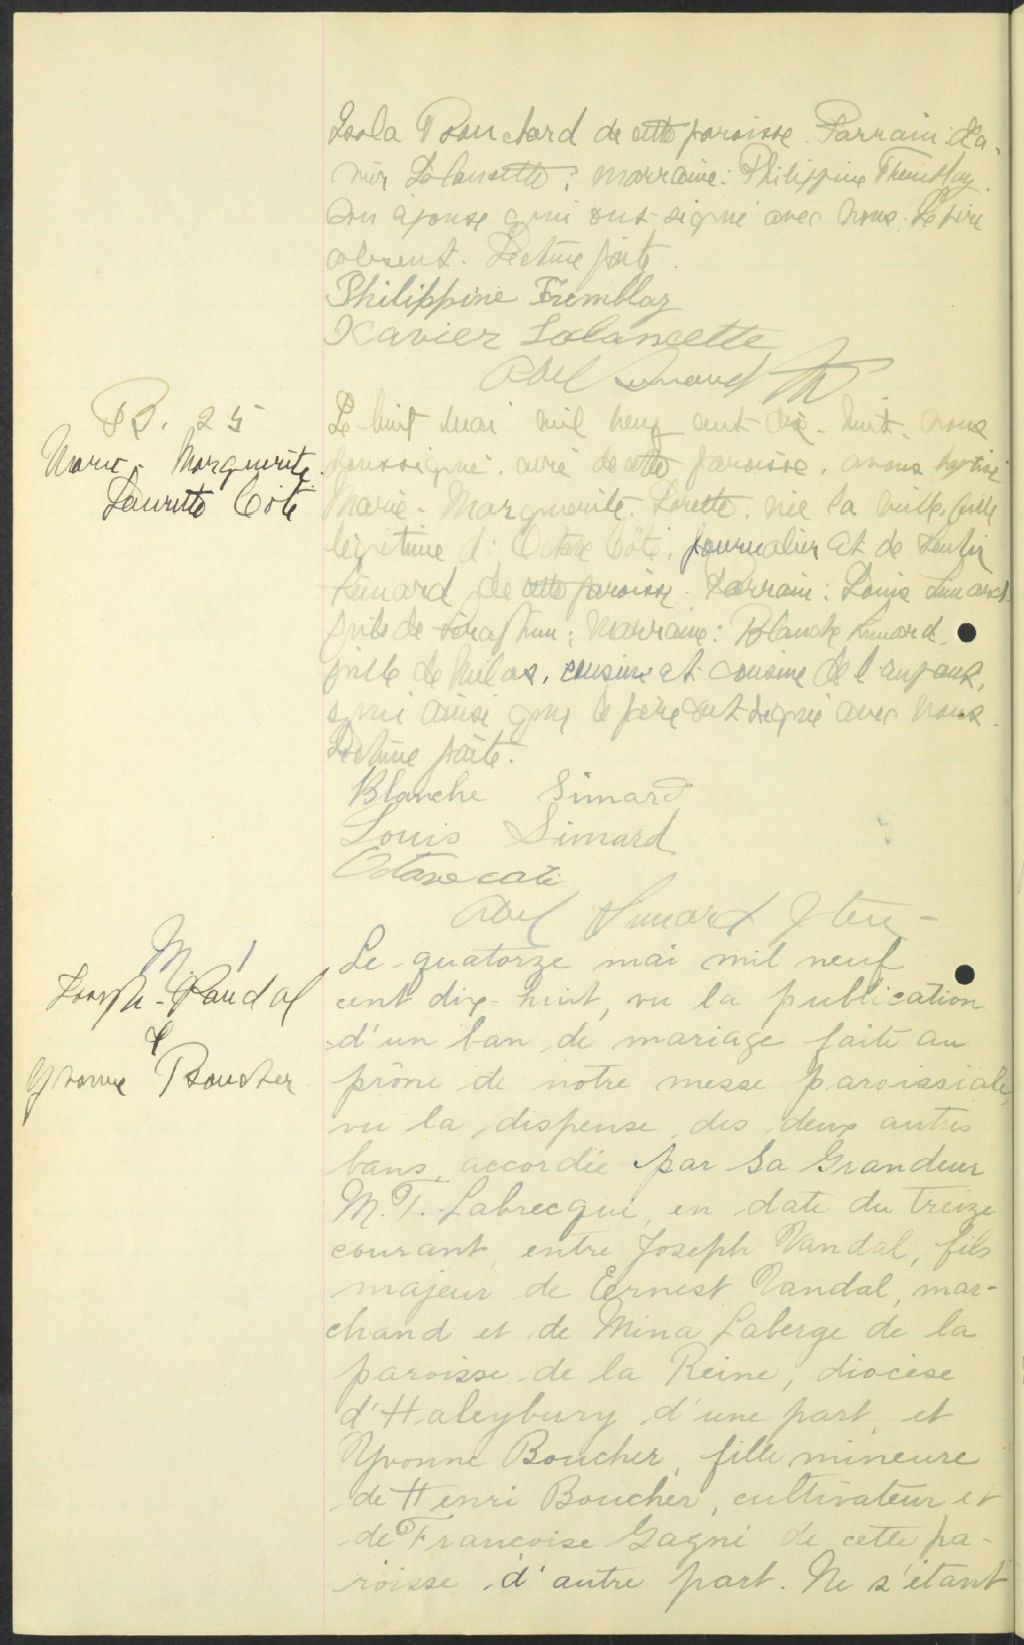 Isola Bouchard de cette paroisse. Parrain: Xa-
vier Lalancette; marraine: Philippine Tremblay
son épouse qui ont signé avec nous. Le père
absent. Lecture faite.
Philippine Tremblay
Xavier Lalancette
Abel Simard
B. 25
Marie-Marguerite
Laurette Côté
Le huit mai mil neuf cent dix-huit, nous
soussigné, curé de cette paroisse, avons baptisé
Marie-Marguerite-Lorette, née la veille, fille
légitime d'Octave Côté, journalier et de
Simard de cette paroisse. Parrain: Louis Simard
fils de Séraphin; Marraine: Blanche Simard
fille de Nicolas, cousin et cousine de l'enfant,
qui ainsi que le père ont signé avec nous.
Lecture faite.
Blanche Simard
Louis Simard
Octave coté
Abel Simard Ptre
M. 1
Joseph Vandal
&
Yvonne Boucher
Le quatorze mai mil neuf
cent dix-huit, vu la publication
d'un ban de mariage faite au
prône de notre messe paroissiale,
vu la dispense des deux autres
bans, accordée par Sa Grandeur
M. T. Labrecque, en date du treize
courant, entre Joseph Vandal, fils
majeur de Ernest Vandal, mar-
chand et de Mina Laberge de la
paroisse de la Reine, diocèse
d'Haleybury d'une part, et
Yvonne Boucher, fille mineure
de Henri Boucher, cultivateur et
de Françoise Gagné de cette pa-
roisse, d'autre part. Ne s'étant